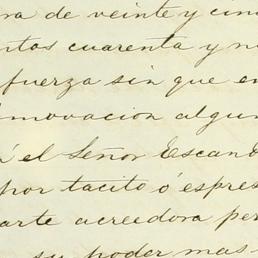 ra de veinte y cinc
ntos cuarenta y n
fuerza sin que en
innovacion algun
á el Señor Escan
por tacito ó espres
arte acreedora per
su poder mas